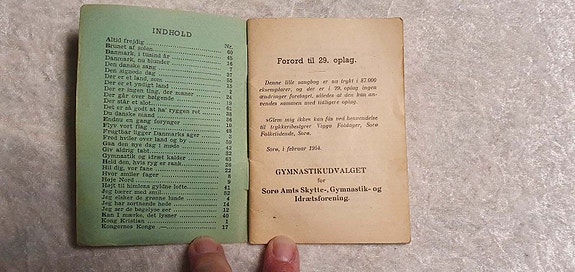 INDHOLD
Nr.
Altid frejdig
Brunet af solen 69
Danmark, i tusind år 45
Danmark, nu blunder 16
Den danske sang 7
Den signede dag 37
Der er et land, som 55
Der er et yndigt land 15
Der er ingen ting, der maner 2
Der går over belgende
Der står et slot
Det er så godt at ha' Fangen ret
Du danske mand 38
Endnu en gang forynger 36
Flyv vort flag
Frugtbar ligger Danmarks ager 3
Fred hviler over land og by
Gøn den nye dag i møde
Giv aldrig tabt
Gymnastik og idræt kalder 63
Held den, hvis ryg er rank
Hil dig, vor fane 22
Hvor smiler fager 8
Høje Nord 9
Højt til himlens gyldne lofte 61
Jeg bærer med smil 52
Jeg elsker de grønne lunde 4
Jeg har sortnende hede 14
Jeg ser de bøgelyse øer 12
Kan I mærke, det lysner 40
Kong Kristian 1
Kongernes Konge 17
Forord til 29. oplag.
Denne lille sangbog er nu trykt i 87.000
eksemplarer, og der er i 29. oplag ingen
ændringer foretaget, således at den kan an-
vendes sammen med tidligere oplag.
»Glem mig ikke« kan fås ved henvendelse
til trykkeribestyrer Viggo Fosdager, Sorø
Folketidende, Sorø.
Sorø, i februar 1954.
GYMNASTIKUDVALGET
for
Sorø Amts Skytte-, Gymnastik- og
Idrætsforening.